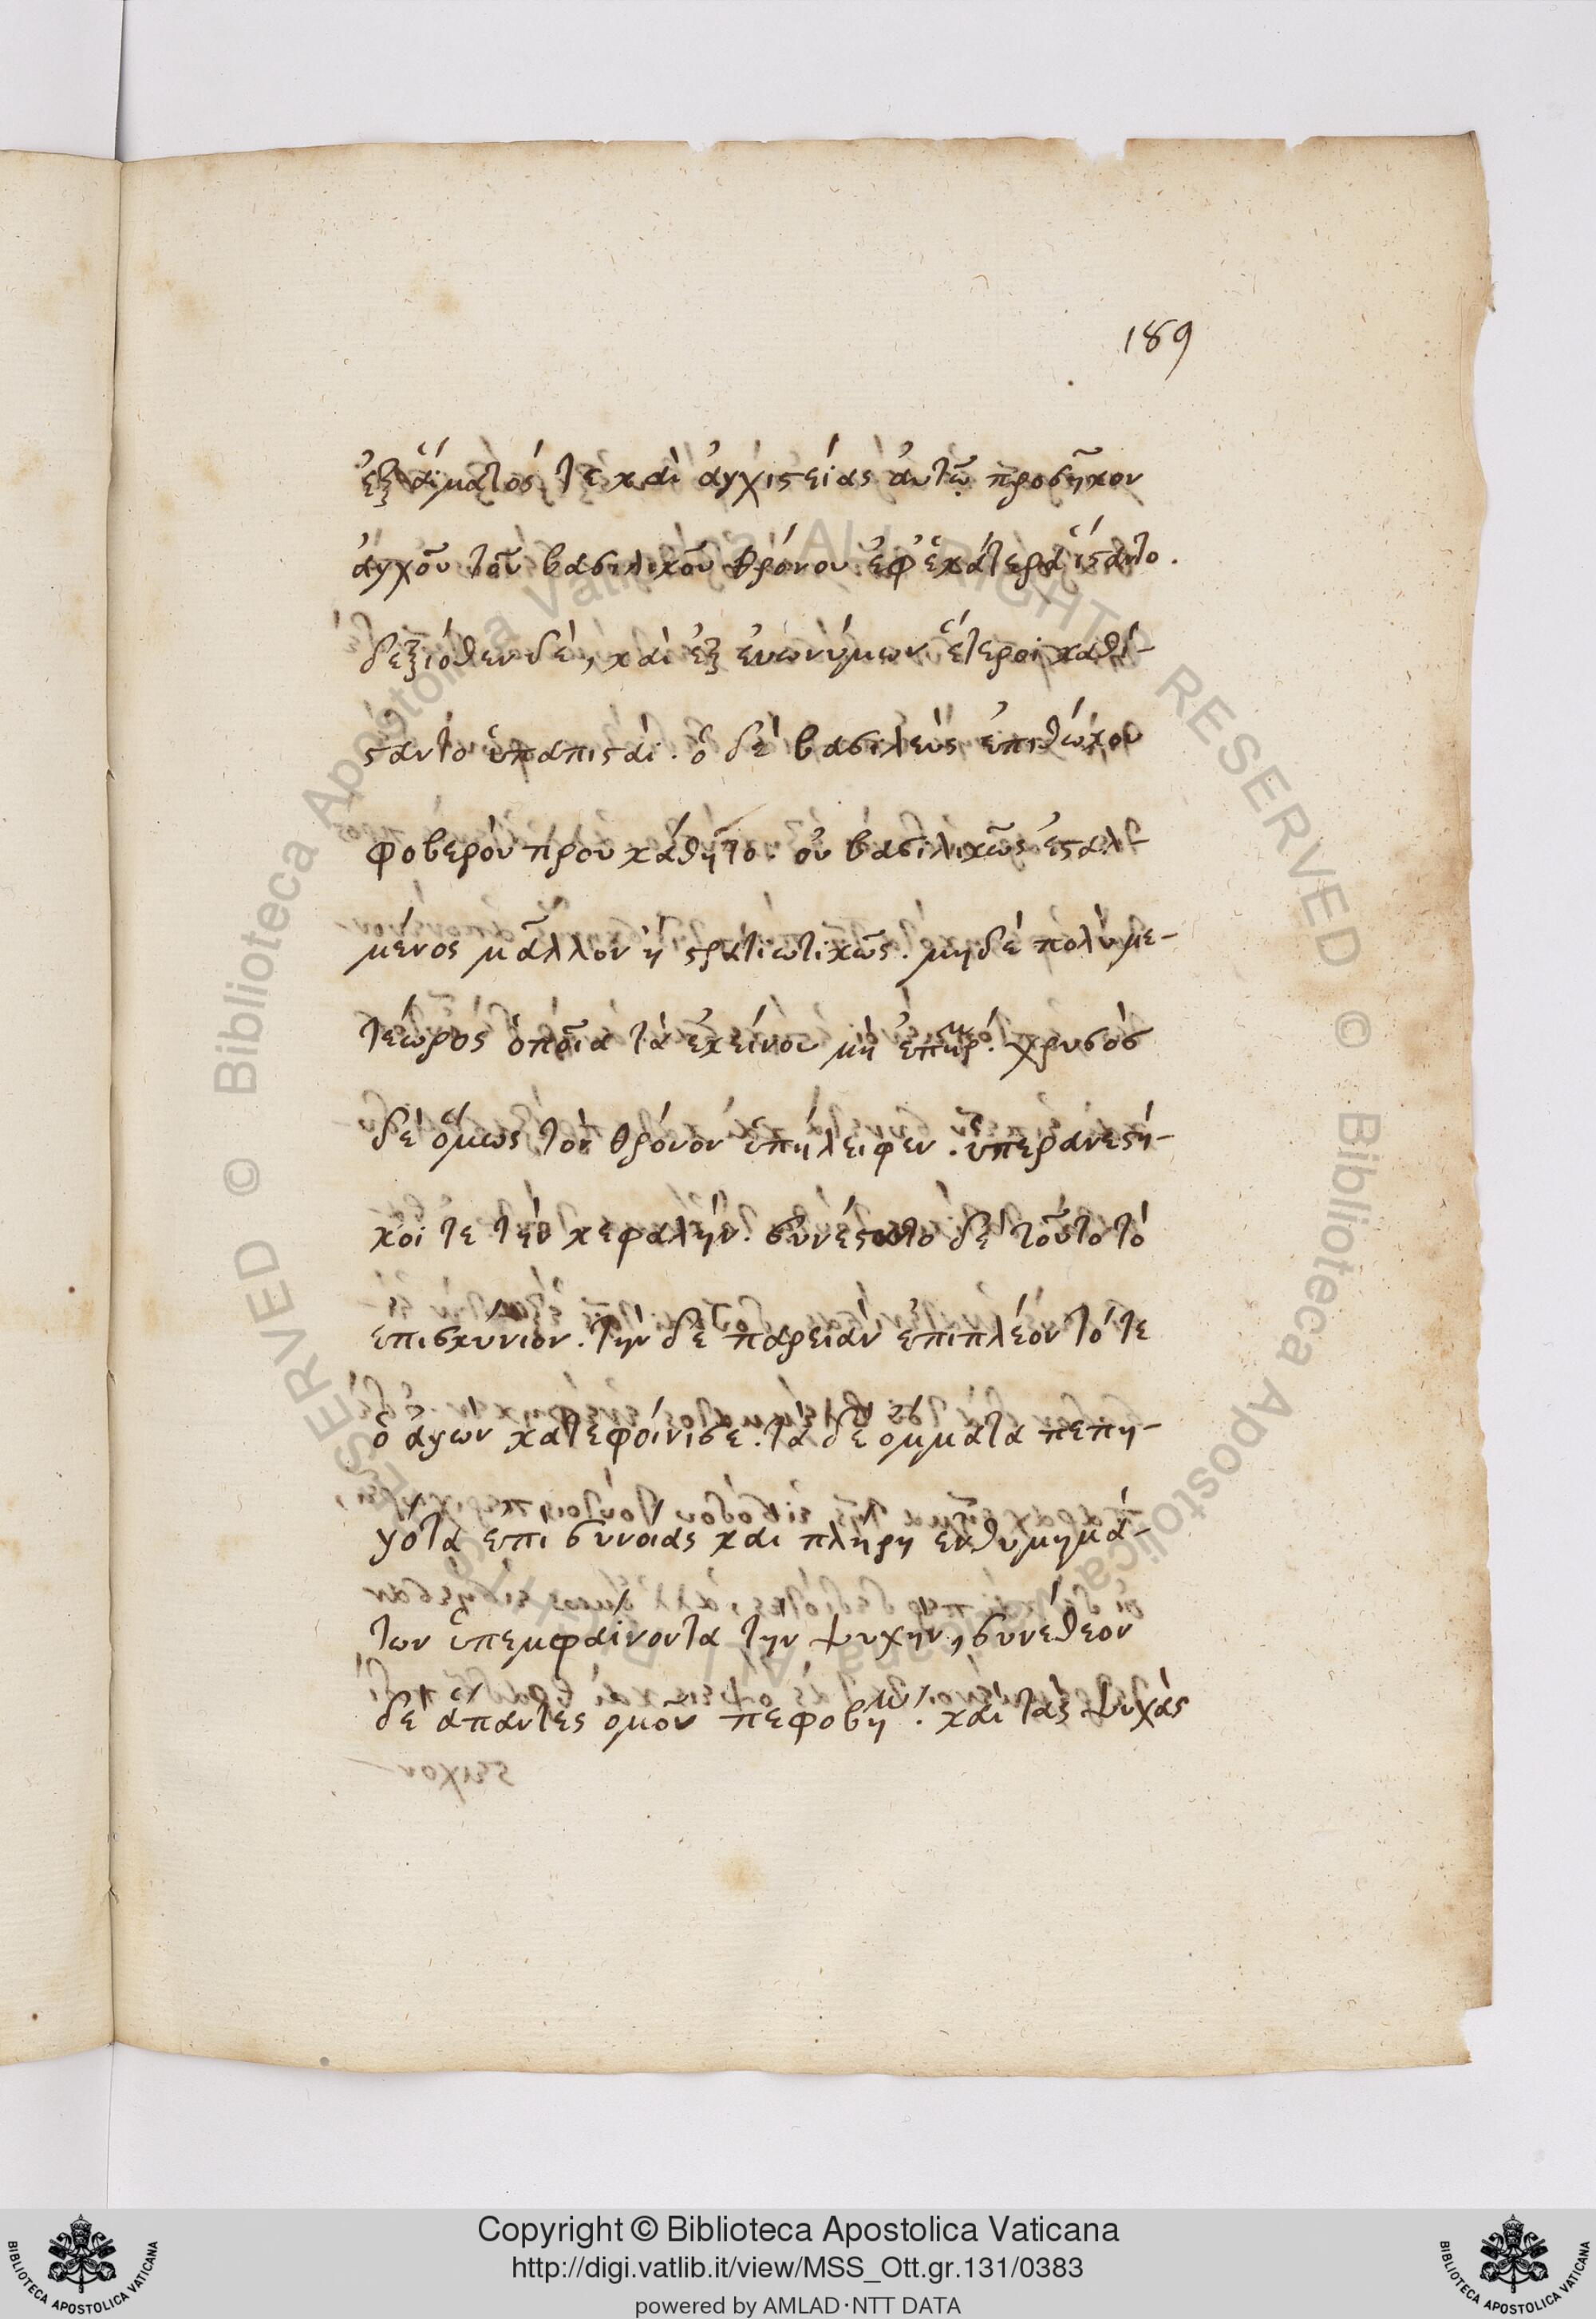 189
ἐξ αἵματός τε καὶ ἀγχιστείας ἀυτῷ προσῆκον
ἀγχοῦ τοῦ βασιλικοῦ θρόνου ἐφ' ἑκάτερα ἵσταντο.
δεξιόθεν δέ, καὶ ἐξ ἐυωνύμων ἕτεροι καθί-
σταντο ὑπασπισταί. ὁ δὲ βασιλεὺς ἐπὶ θώκου
φοβερὸν που κάθητο. οὐ βασιλικῶς ἐσταλ-
μένος μᾶλλον ἢ στρατιωτικῶς. μηδὲ πολὺ με-
τέωρος ὁποῖα τὰ ἐκείνου χρυσὸς
δὲ ὅμως τὸν θρόνον ἐπήλειφεν. ὑπερανεστή-
κοι τε τὴν κεφαλήν. δὲ τοῦτο τὸ
επισκύνιον. τὴν δὲ παρειὰν ἐπιπλέον τό τε
ὁ αγων κατεφοίνισε. τὰ δὲ ομματα πεπη-
γότα ἐπὶ συνοιας και πλήρη ἐνθυμημά-
των ὑπεμφαίνοντα την ψυχην, συνέθεον
δὲ ἁπαντες ομοῦ και τὰς ψυχὰς
Copyright © Biblioteca Apostolica Vaticana
http://digi.vatlib.it/view/MSS_Ott.gr.131/0383
powered by AMLAD·NTT DATA